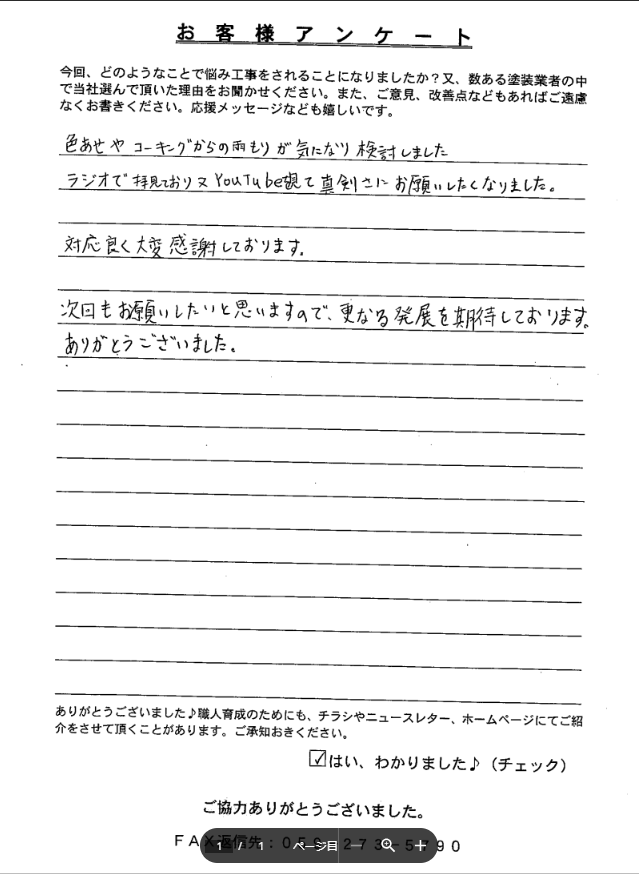 お客様アンケート
今回、どのようなことで悩み工事をされることになりましたか？又、数ある塗装業者の中
で当社選んで頂いた理由をお聞かせください。また、ご意見、改善点などもあればご遠慮
なくお書きください。応援メッセージなども嬉しいです。
色あせや コーキングからの雨もりが気になり検討しました
ラジオで拝見しており又YouTube観て真剣さにお願いしたくなりました。
対応良く大変感謝しております。
次回もお願いしたいと思いますので、更なる発展を期待しております。
ありがとうございました。
ありがとうございました♪職人育成のためにも、チラシやニュースレター、ホームページにてご紹
介をさせて頂くことがあります。ご承知おきください。
はい、わかりました♪（チェック）
ご協力ありがとうございました。
ＦＡＸ返信先：
1 / 1 ページ目